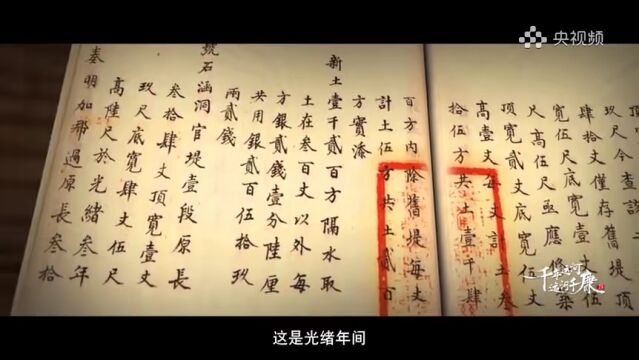 央视频
玖尺今查該
肆拾丈僅存舊堤頂
寬伍尺底寬壹丈伍
尺高伍尺亟應修築
頂寬貳丈底寬伍丈
高壹丈每丈計土叁
拾伍方共土壹千肆
百方內除舊堤每丈
計土伍方共土貳百
方實添
新土壹千貳百方隔水取
土在叁百丈以外每
方銀貳錢壹分陸厘
共用銀貳百伍拾玖
兩貳錢
號石涵洞官堤壹段原長
叁拾肆丈頂寬壹丈
玖尺底寬肆丈伍尺
高陸尺於光緒叁年
奏明加那過原長叁拾
千年运河
运河千廉
这是光绪年间